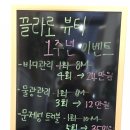 끌리로 뷰티
1주년 이벤트
-비디관리 1회 8만
4회→ 24만원
-물광관리 1회 6만
3회→ 12만원
-문제성 트러블 1회
5회→ 35만